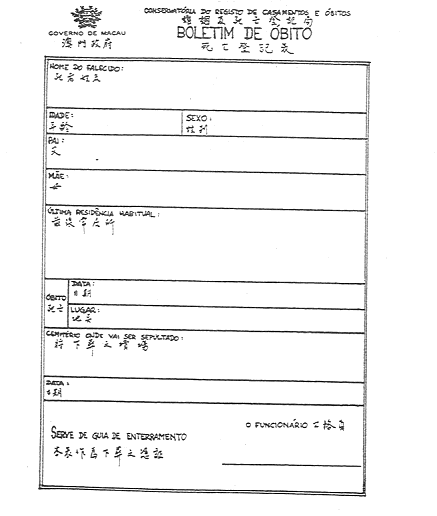 CONSERVATÓRIA DO REGISTO DE CASAMENTOS E ÓBITOS
GOVERNO DE MACAU
澳門政府
BOLETIM DE ÓBITO
死亡登記表
NOME DO FALECIDO:
死者姓名
IDADE:
年齡
SEXO:
性別
PAI:
父
MÃE:
母
ÚLTIMA RESIDÊNCIA HABITUAL:
ÓBITO
死亡
DATA:
日期
LUGAR:
地點
CEMITÉRIO ONDE VAI SER SEPULTADO:
將下葬之墳場
DATA:
日期
SERVE DE GUIA DE ENTERRAMENTO
本表作為下葬之憑証
O FUNCIONÁRIO